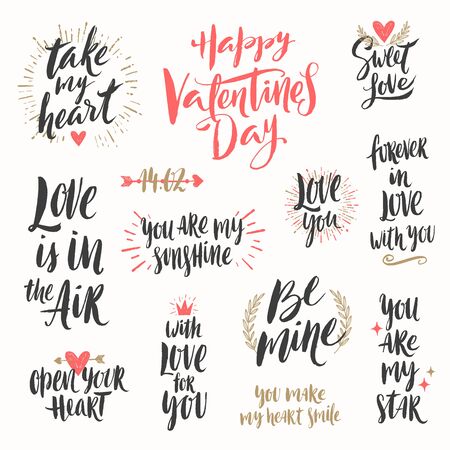 take
my
heart
Happy
Valentines
Day
Sweet
Love
14.02
Love
is in
the Air
you are my
sunshine
Love
you
forever
in
love
with you
open your
heart
with
Love
for
you
Be
mine
you make
my heart smile
you
are
my
star